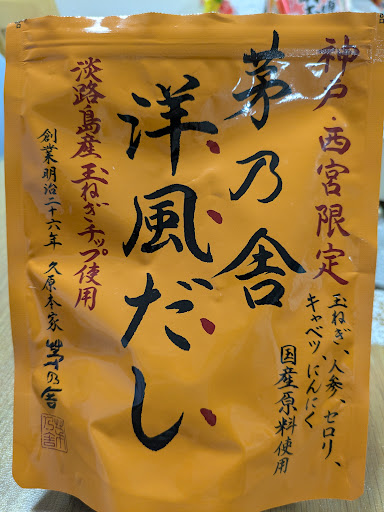 神戸・西宮限定
茅乃舎
洋風だし
玉ねぎ、人参、セロリ、
キャベツ、にんにく
国産原料使用
淡路島産玉ねぎチップ使用
創業明治二十六年 久原本家 茅乃舎